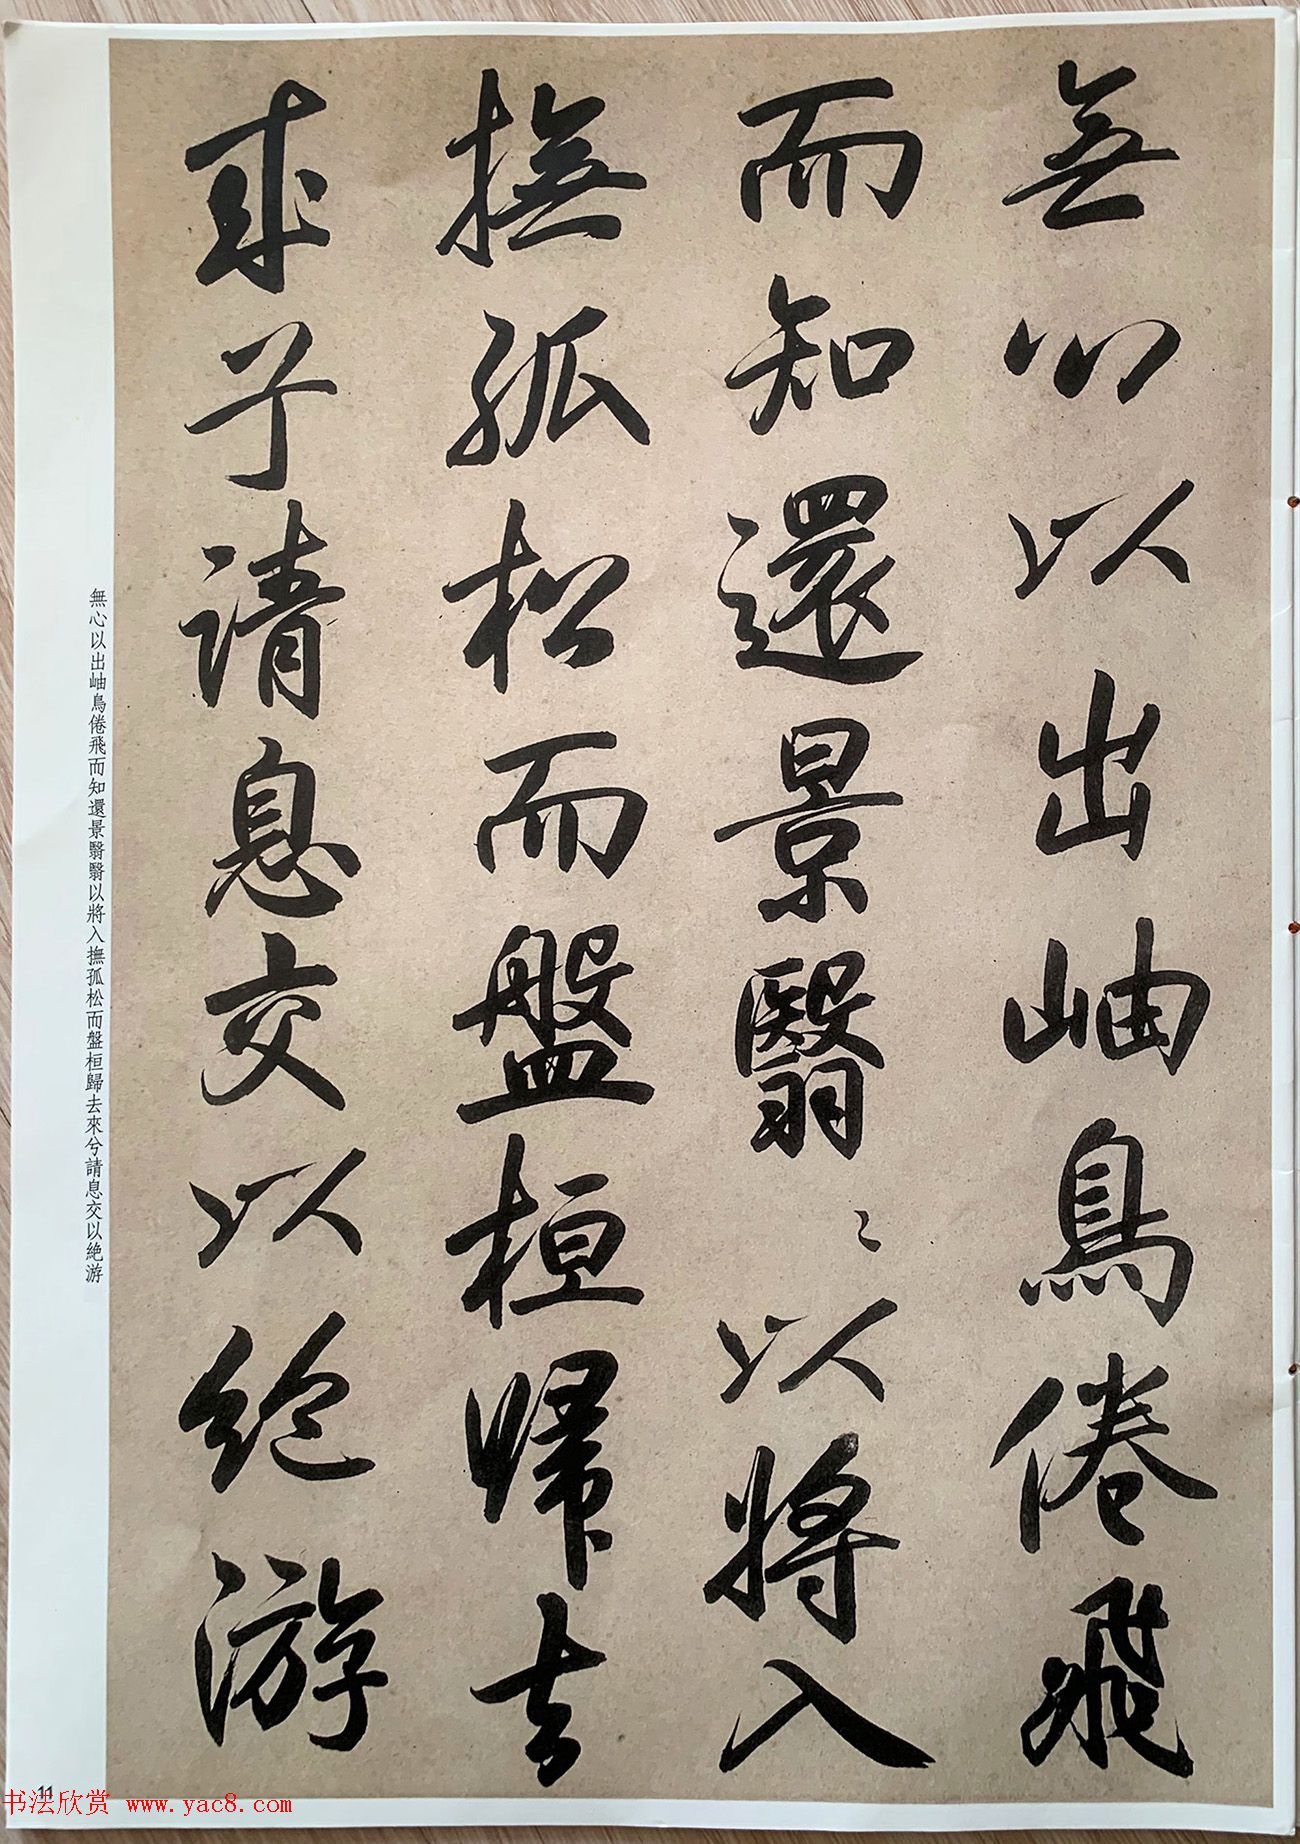 無心以出岫鳥倦飛
而知還景翳〻以將入
撫孤松而盤桓歸去
來兮請息交以絶游
無心以出岫鳥倦飛而知還景翳翳以將入撫孤松而盤桓歸去來兮請息交以絶游
11
书法欣赏 www.yac8.com